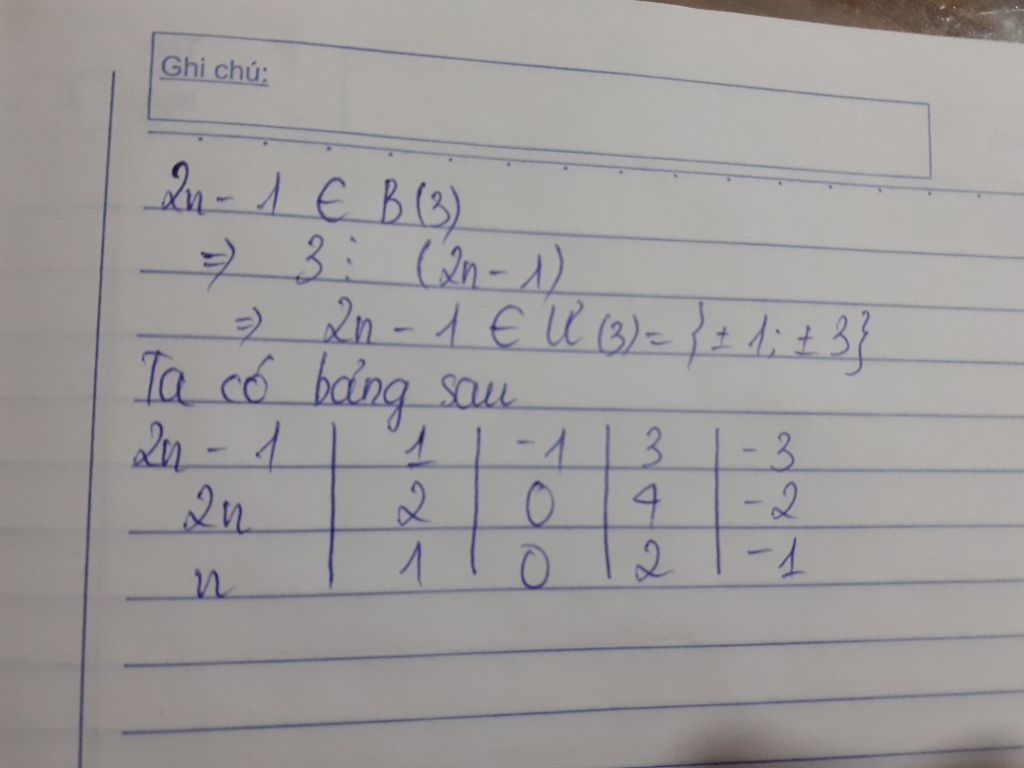 Ghi chú:
2n - 1 ∈ B (3)
=> 3 ⋮ (2n - 1)
=> 2n - 1 ∈ Ư (3) = {± 1; ± 3}
Ta có bảng sau
2n - 1 | 1 | -1 | 3 | -3
2n | 2 | 0 | 4 | -2
n | 1 | 0 | 2 | -1